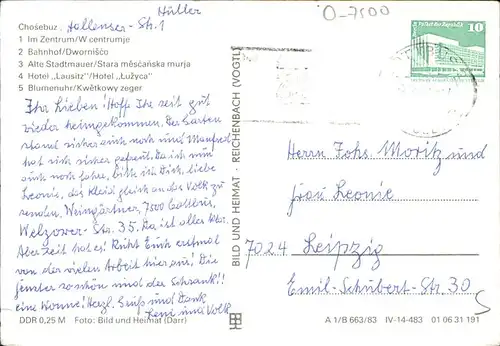 Hüller
O-7500
Chosebuz, Hallenser-Str. 1
1 Im Zentrum/W centrumje
2 Bahnhof/Dwornišćo
3 Alte Stadtmauer/Stara měsćańska murja
4 Hotel „Lausitz"/Hotel „Łužyca"
5 Blumenuhr/Kwětkowy zeger
Ihr Lieben! Hoff, Ihr seit gut
wieder heimgekommen. Der Garten
stand sicher auch noch und Manfred
hat sich sicher gefreut. Da ich nun
auch noch fahre, bitt ich Dich, liebe
Leonie, das Kleid gleich an das Volk zu
senden. Weingärtner, 7500 Cottbus,
Welzower-Str. 35. Da ist alles klar.
Aber Zeit hat es! Ruht Euch erstmal
von der vielen Arbeit hier aus! Die
Fenster so schön und der Schrank!!
eine Wonne! Herzl. Gruß und Dank
Leni und Volk
DDR 0,25 M Foto: Bild und Heimat (Darr)
BILD UND HEIMAT · REICHENBACH (VOGTL)
10
Herrn Johs. Moritz und
Frau Leonie
7024 Leipzig
Emil-Schubert-Str. 30
S
A 1/B 663/83 IV-14-483 01 06 31 191